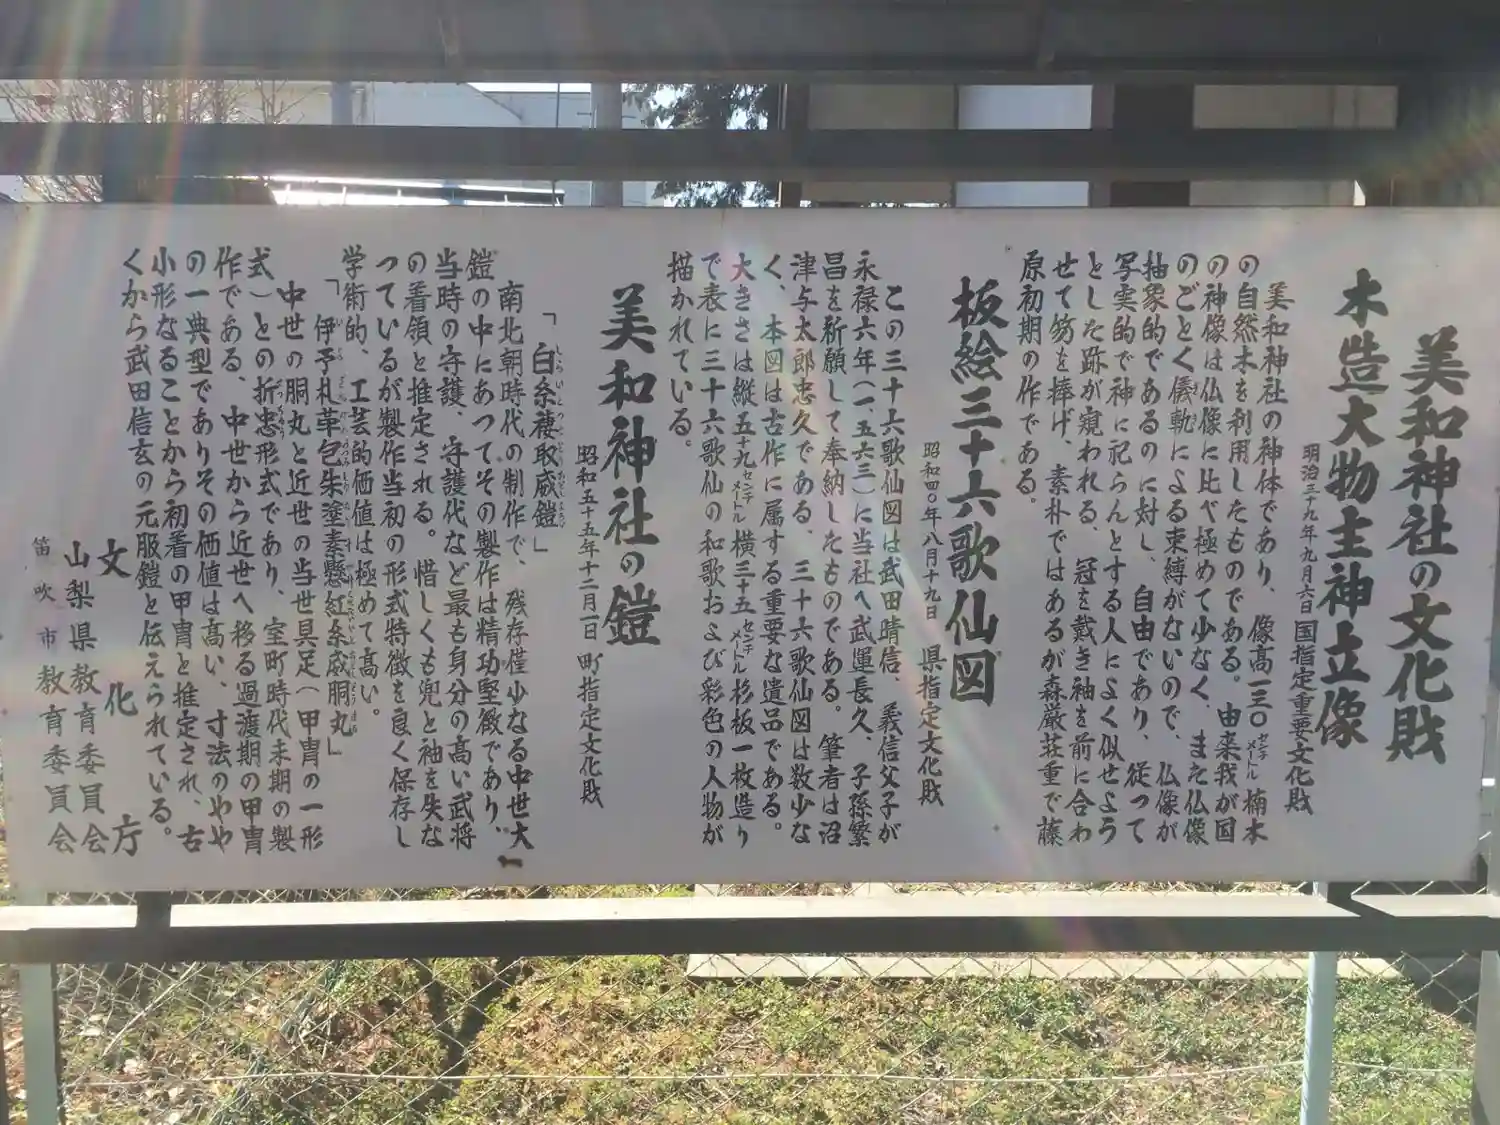 美和神社の文化財
木造大物主神立像
明治三九年九月六日国指定重要文化財
美和神社の神体であり、像高一三〇センチメートル楠木
の自然木を利用したものである。由来我が国
の神像は仏像に比べ極めて少なく、また仏像
のごとく儀軌による束縛がないので、仏像が
抽象的であるのに対し、自由であり、従って
写実的で神に祀らんとする人によく似せよう
とした跡が窺われる、冠を戴き袖を前に合わ
せて笏を捧げ、素朴ではあるが森厳荘重で藤
原初期の作である。
板絵三十六歌仙図
昭和四〇年八月十九日 県指定文化財
この三十六歌仙図は武田晴信、義信父子が
永禄六年(一、五六三)に当社へ武運長久、子孫繁
昌を祈願して奉納したものである。筆者は沼
津与太郎忠久である、三十六歌仙図は数少な
く、本図は古作に属する重要な遺品である。
大きさは縦五十九センチメートル横三十五センチメートル杉板一枚造り
で表に三十六歌仙の和歌および彩色の人物が
描かれている。
美和神社の鎧
昭和五十五年十二月一日 町指定文化財
「白糸褄取威鎧」
南北朝時代の制作で、残存僅少なる中世大
鎧の中にあってその製作は精功堅緻であり、
当時の守護、守護代など最も身分の高い武将
の着領と推定される。惜しくも兜と袖を失な
っているが製作当初の形式特徴を良く保存し
学術的、工芸的価値は極めて高い。
「伊予札革包朱塗素懸紅糸威胴丸」
中世の胴丸と近世の当世具足(甲冑の一形
式)との折忠形式であり、室町時代末期の製
作である、中世から近世へ移る過渡期の甲冑
の一典型でありその価値は高い、寸法のやや
小形なることから初着の甲冑と推定され、古
くから武田信玄の元服鎧と伝えられている。
文化庁
山梨県教育委員会
笛吹市教育委員会